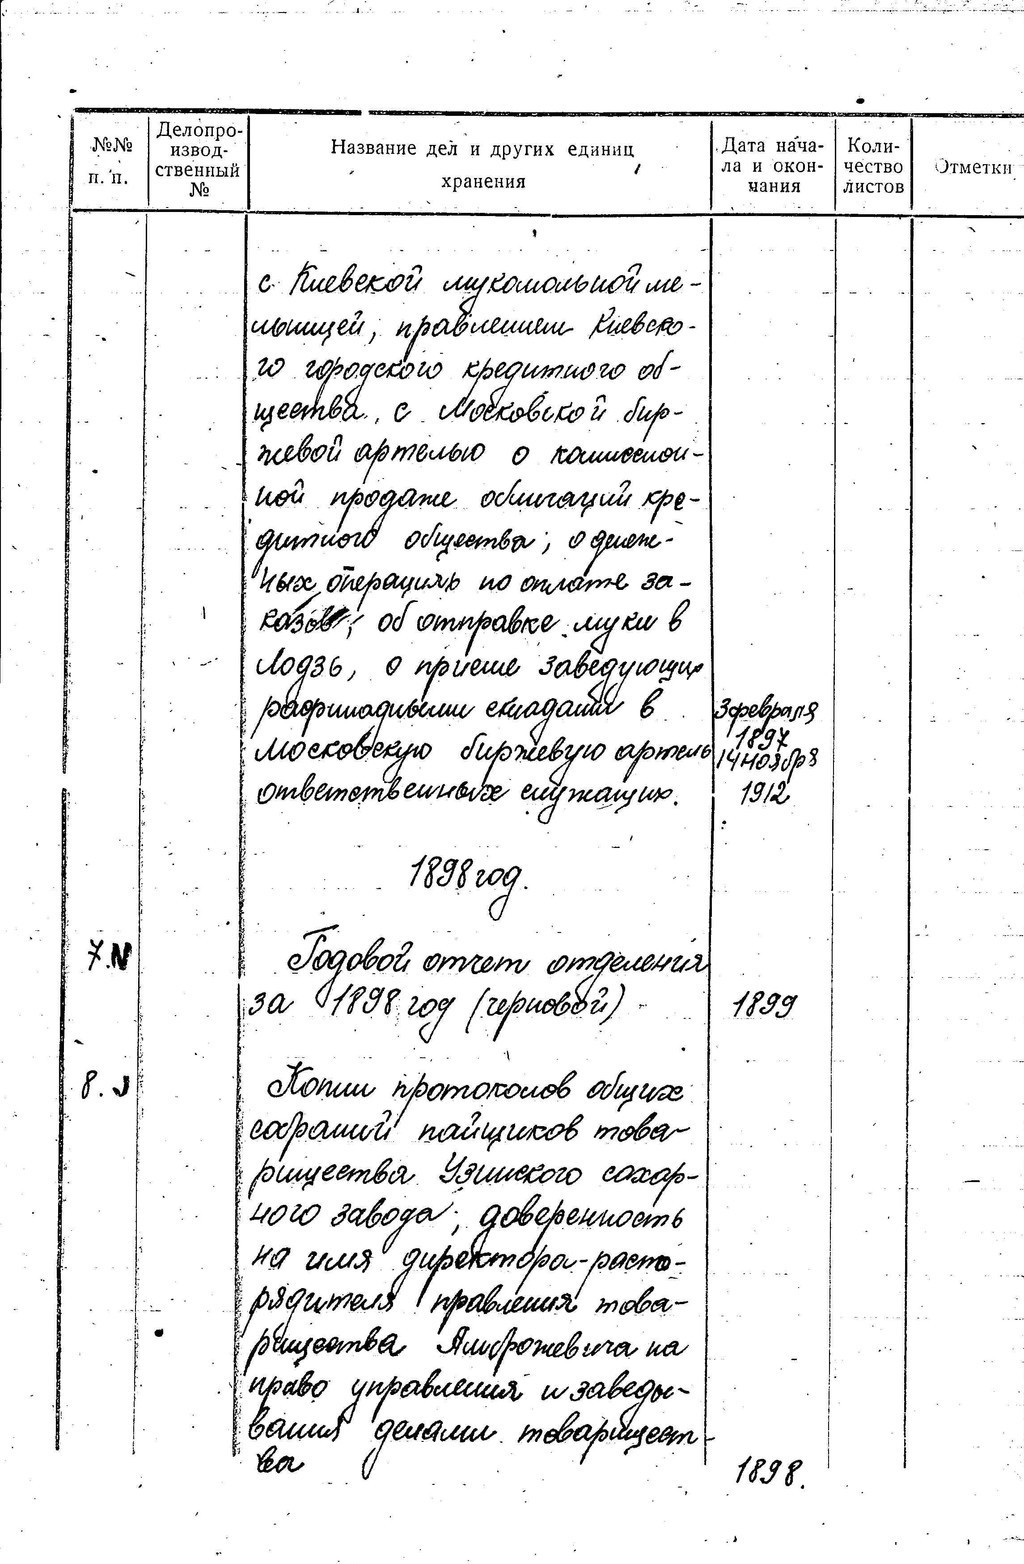 №№ п. п.
Делопро-
извод-
ственный
№
Название дел и других единиц
хранения
Дата нача-
ла и окон-
чания
Коли-
чество
листов
Отметки
с Киевской мукомольной ме-
льницей, правлением Киевско-
го городского кредитного об-
щества, с Московской бир-
жевой артелью о комиссион-
ной продаже облигаций кре-
дитного общества, о денеж-
ных операциях по оплате за-
казов, об отправке муки в
Лодзь, о приеме заведующих
рафинадными складами в
Московскую биржевую артель
ответственных служащих.
3 февраля
1897
14 ноября
1912
1898 год.
7.
Годовой отчет отделения
за 1898 год (черновой)
1899
8.
Копии протоколов общих
собраний пайщиков това-
рищества Узинского сахар-
ного завода, доверенность
на имя директора-распо-
рядителя правления това-
рищества Амброжевича на
право управления и заведы-
вания делами товарищест-
ва
1898.